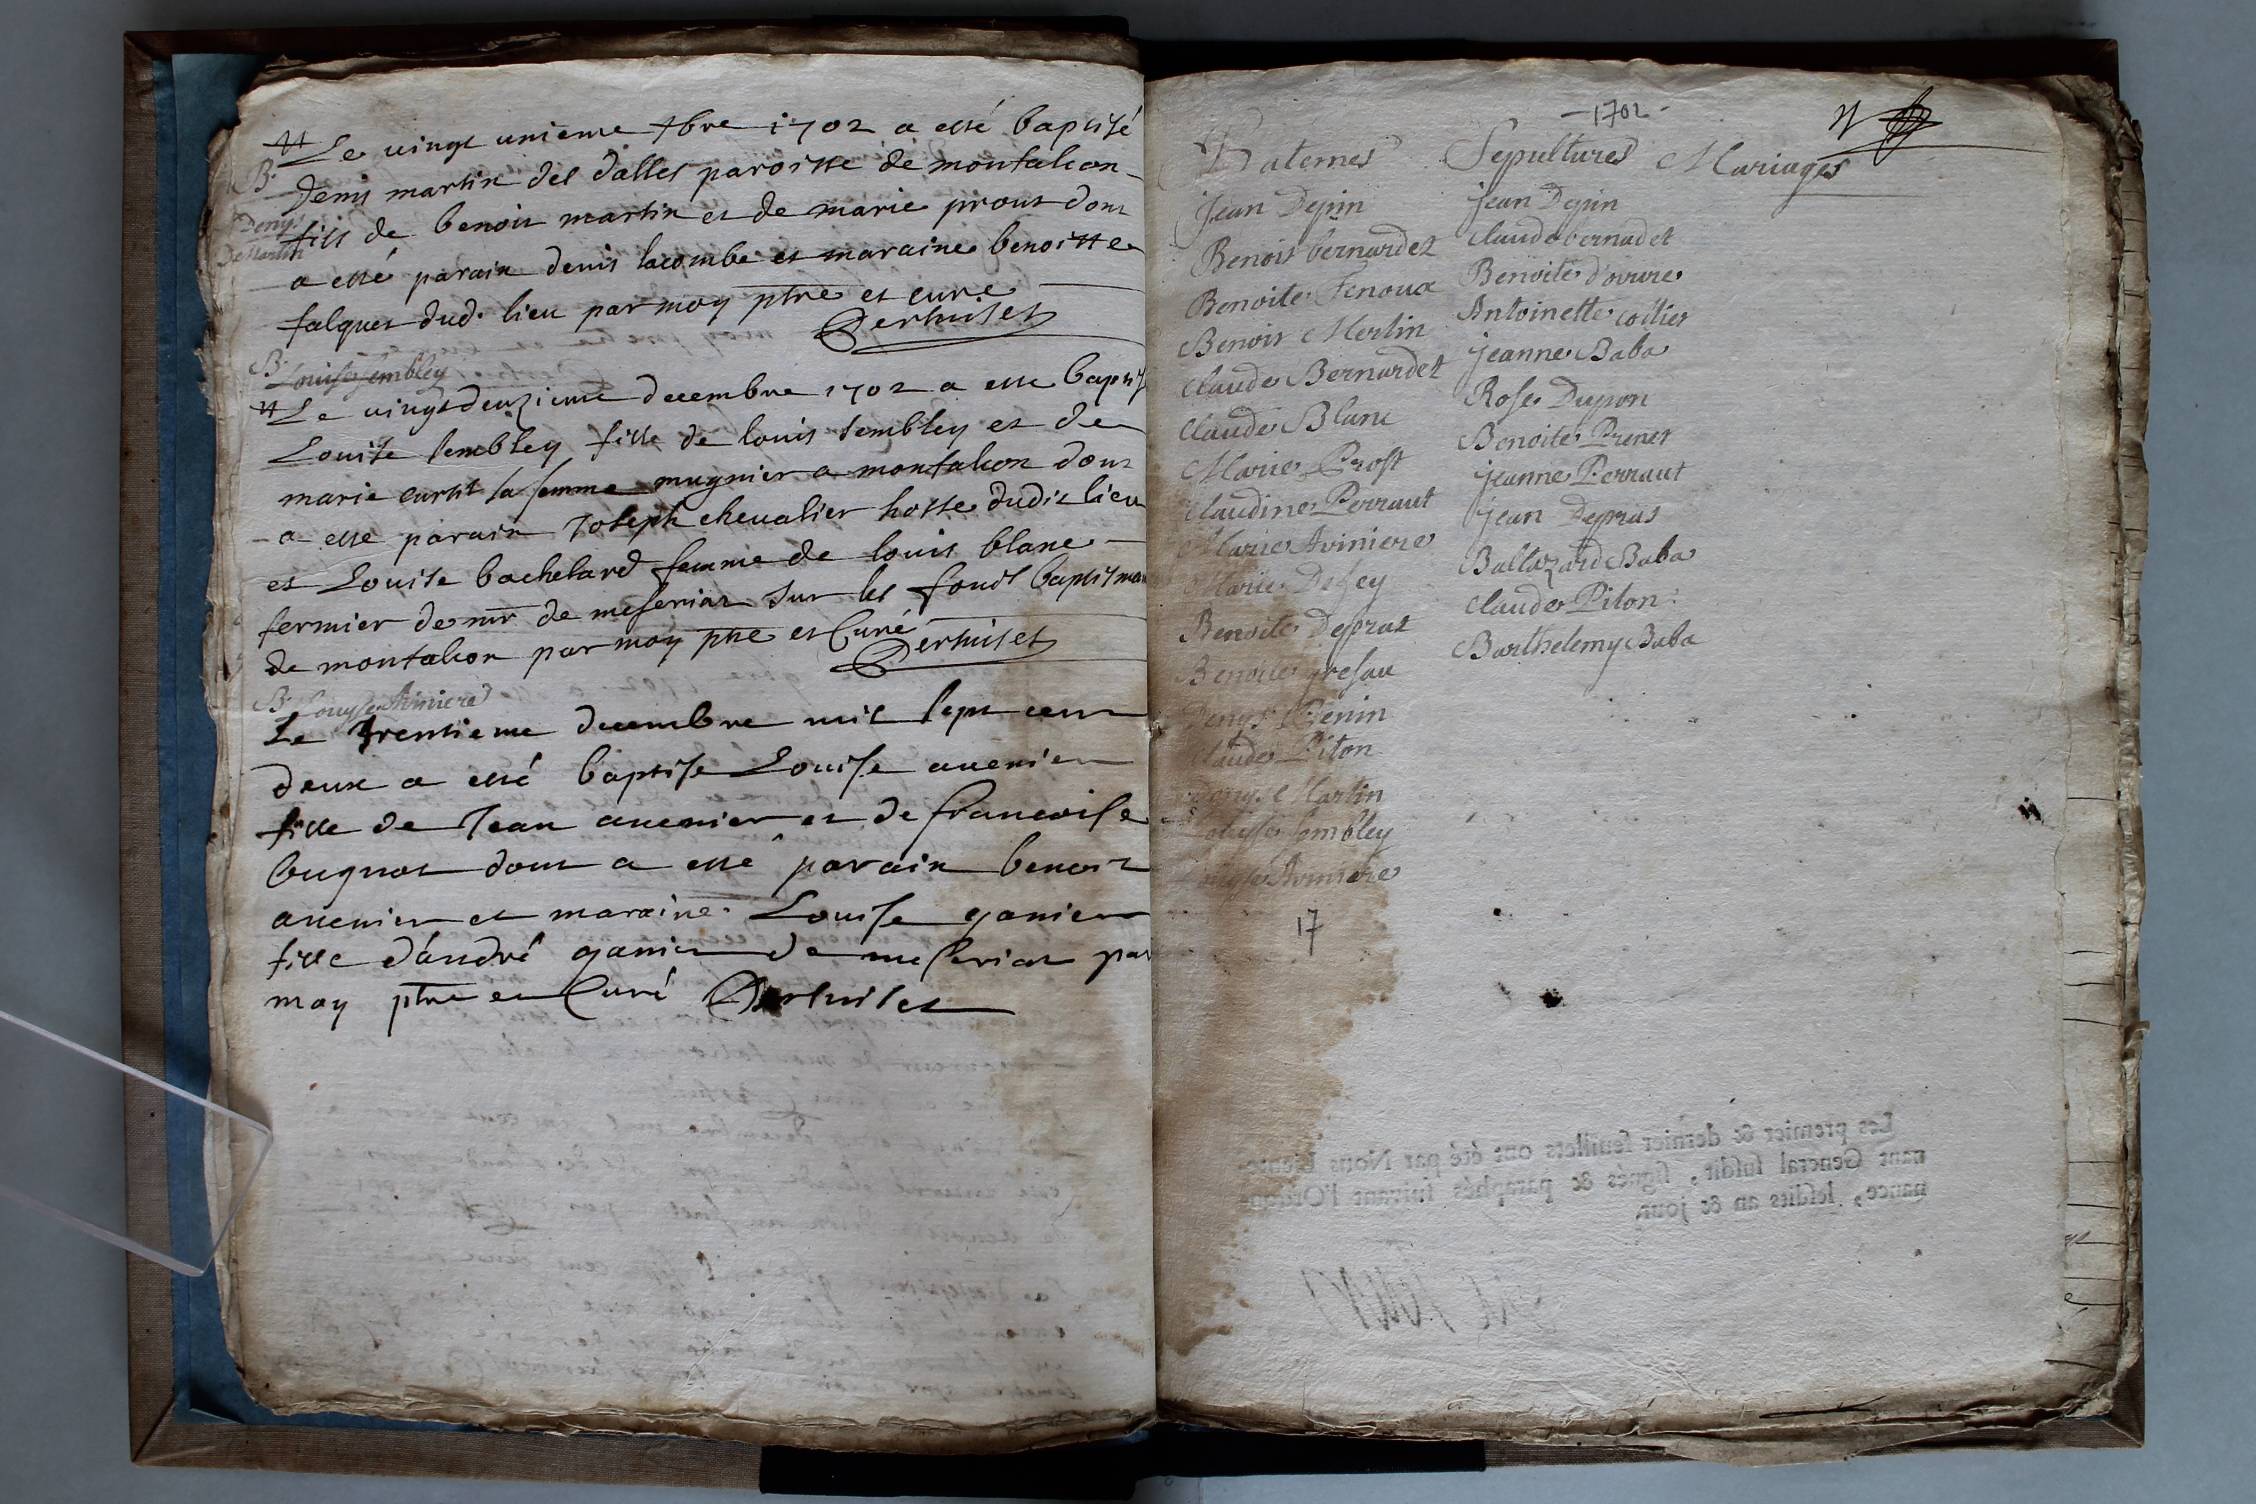 Le vingt unieme xbre 1702 a esté baptisé
B.
denis martin des dalles paroisse de montalion
Denys
Martin
fils de benoit martin et de marie prout dont
a esté parain denis lacombe et maraine benoitte
falquet dud. lieu par moy ptre et curé
B.
Louise Sembley
Le vingt deuzieme decembre 1702 a esté bapti
Louise sembley fille de louis sembley et de
marie sa femme mugnier a montalion dont
a esté parain Joseph chevalier hoste dudit lieu
et Louise bachelard femme de louis blanc
fermier de mr de meseriat sur les fonds baptismau
de montalion par moy ptre et Curé
B. Louyse Aviniere
Le trentieme decembre mil sept cent
deux a esté baptisé Louise avenier
fille de Jean avenier et de francoise
bugnot dont a esté parain benoit
avenier et maraine Louise ganier
fille d'andré ganier de meseriat par
moy ptre et Curé
1702
Batemes Sepultures Mariages
Jean Depin
Benoit bernardet
Benoite Fenoux
Benoit Merlin
Claude Bernardet
Claude Blanc
Marie Prost
Claudine Perraut
Marie Aviniere
Marie Defey
Benoite Depras
Benoite gresau
Denys Benin
Claude Piton
Denyse Martin
Louyse Sembley
Louyse Aviniere
17
Jean Depin
Claude bernadet
Benoite d'ovure
Antoinette collier
jeanne Baba
Rose Dupon
Benoite Prenet
jeanne Perraut
jean Depras
Baltazard Baba
Claude Piton
Barthelemy Baba
Les premier & dernier feuillets ont été par Nous Lieute-
nant General susdit, signés & paraphés suivant l'Ordon-
nance, lesdits an & jour.